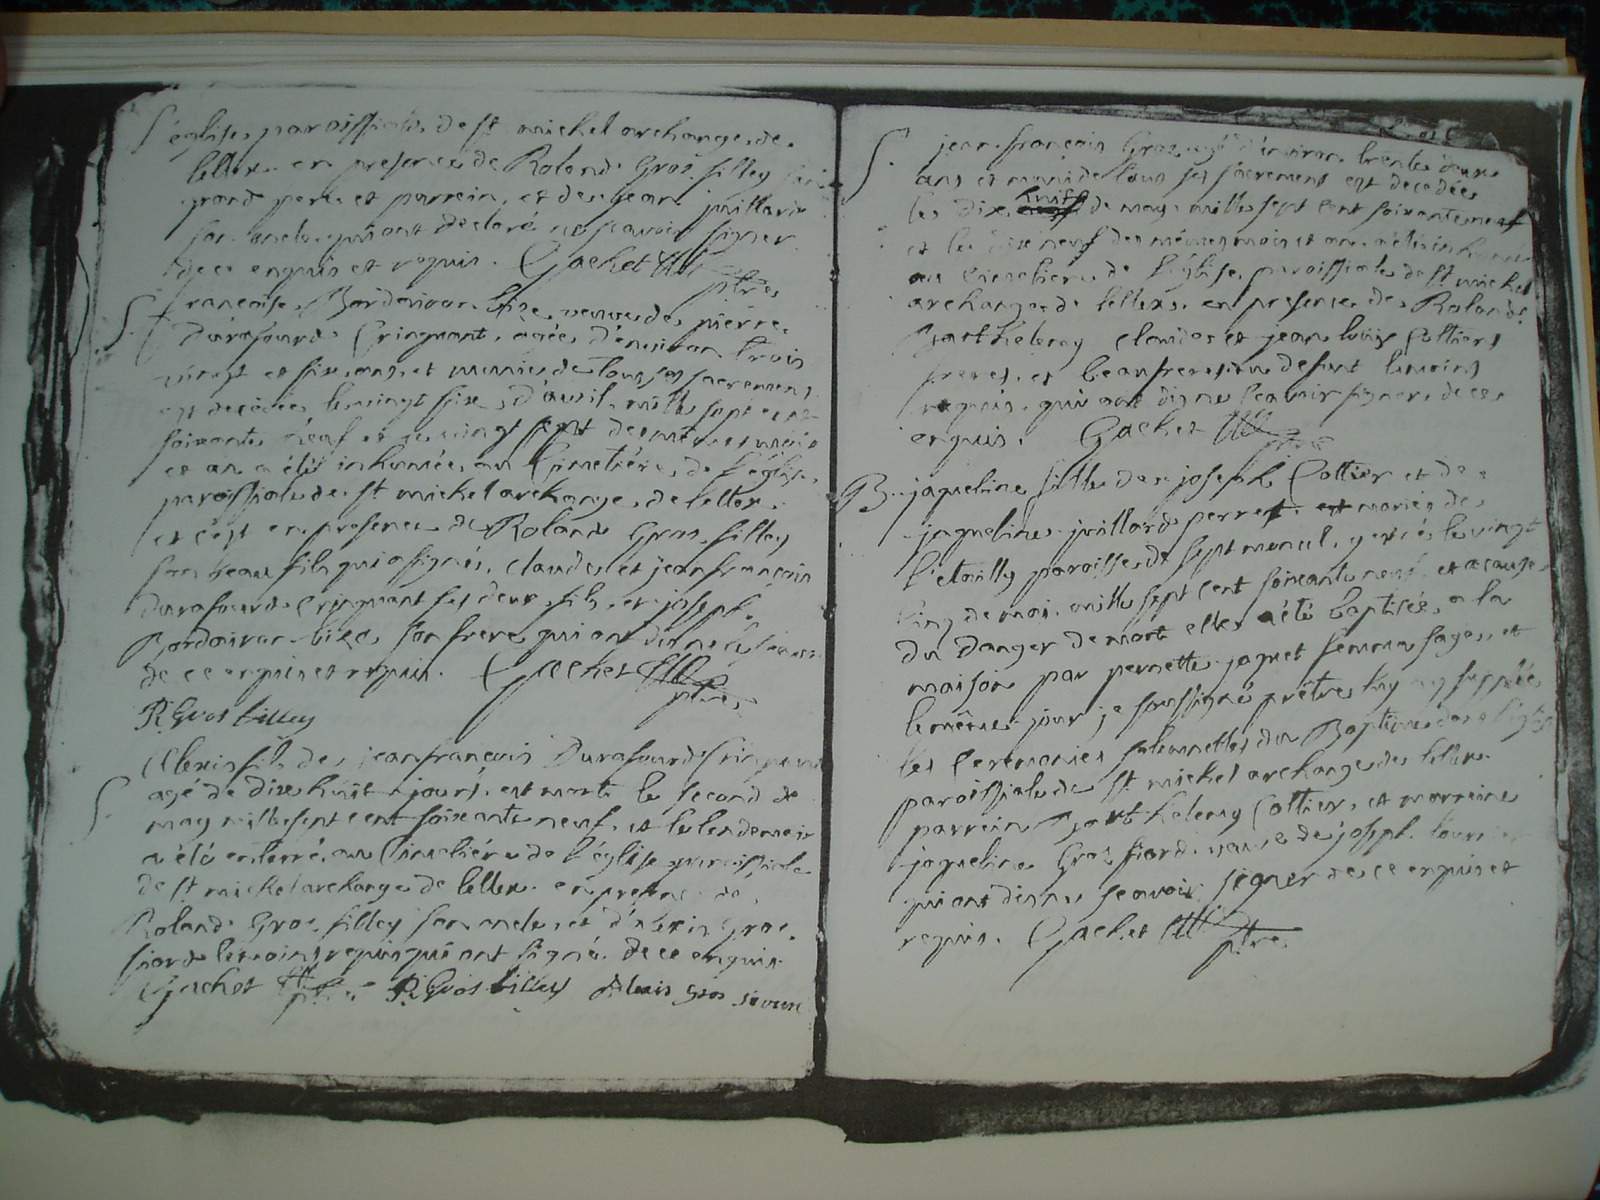 S
l'eglise paroissiale de st michel archange de
lellex en presence de Roland Gros filley
grand pere et parrein, et de jean juillard
son oncle qui ont declaré ne scavoir signer
de ce enquis et requis. Gachet
ptre
S
francoise Bordoivon veuve de pierre
Durafourd Cringuant, agée d'environ trois
vingt et six ans, et munie de tous ses sacremens
est decedée le vingt six d'avril mille sept cent
soixante neuf et le vingt sept des même mois
et an a été inhumée au Cimetière de l'église
paroissiale de st michel archange de lellex
et c'est en presence de Roland Gros filley
son beau fils qui a signé, claude et jean françois
durafourd Cringuant ses deux fils, et joseph
Bordoivon son frere qui ont dit ne
de ce enquis et requis. Gachet
ptre
R Gros filley
S
Alexis fils de jean françois Durafourd Cringuant
agé de dixe huit jours, est mort le second de
may mille sept cent soixante neuf, et le lendemain
a été enterré au Cimetière de l'église paroissiale
de st michel archange de lellex en presence de
Roland Gros filley son oncle, et d'alexis Gros
fiard temoins requis qui ont signé de ce enquis
Gachet ptre R Gros filley Alexis Gros
S
jean françois Gros agé d'environ trente deux
ans et muni de tous ses sacremens est decedée
le dixe huit de may mille sept cent soixante neuf
et le dixe neuf des mêmes mois et an a été inhumé
au Cimetière de l'église paroissiale de st michel
archange de lellex en presence de Roland
Barthelemy claude et jean louis Cottier
freres et beaufrere du defunt temoins
requis qui ont dis ne scavoir signer de ce
enquis. Gachet
ptre
B
jaqueline fille de joseph Cottier et de
jaqueline juillard perret mariés de
paroisse de sept moncel, y est née le vingt
cinq de mai mille sept cent soixante neuf, et a cause
du danger de mort elle a été baptisée a la
maison par pernette jaquet femme sage, et
le même jour je soussigné prêtre luy ay supplée
les Ceremonies solennelles du Baptême dans l'église
paroissiale de st michel archange de lellex
parrein Barthelemy Cottier, et marreine
jaqueline Gros fiard veuve de joseph
qui ont dis ne scavoir signer de ce enquis et
requis. Gachet ptre